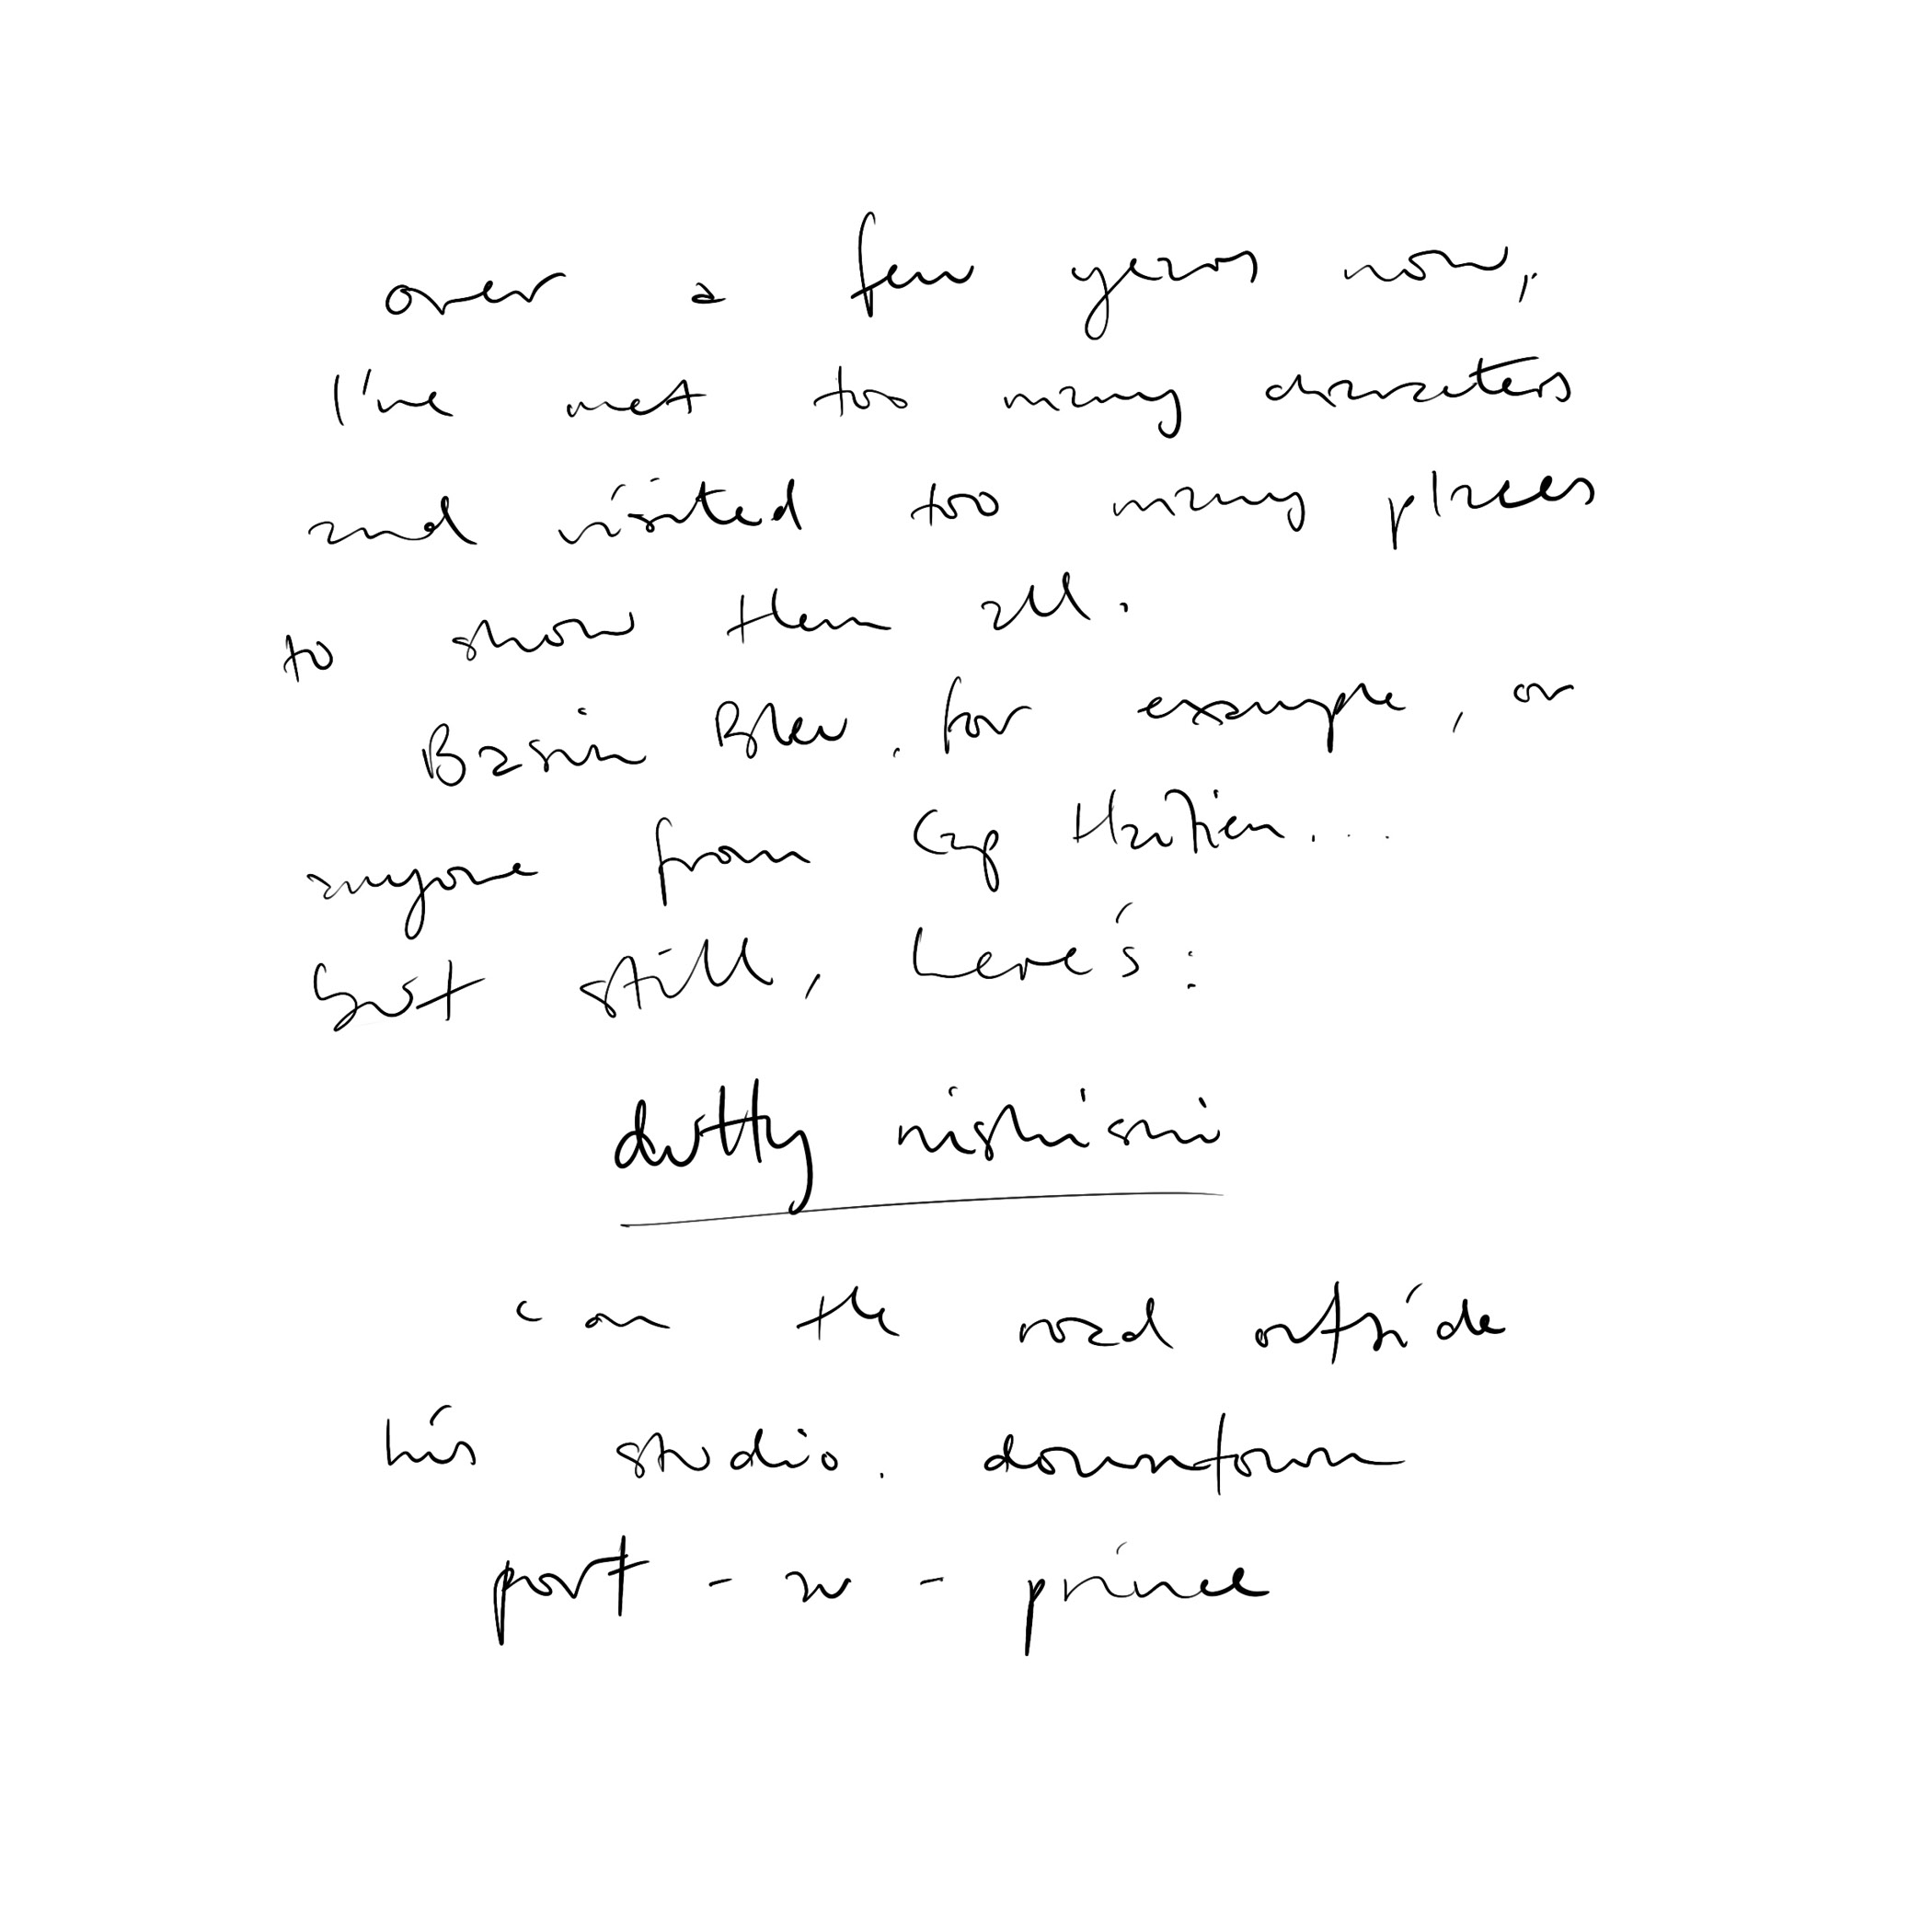 over a few years now,
I've met too many characters
and visited too many places
to show them all.
Bassin Bleu, for example, or
anyone from Cap Haïtien...
but still, here's:
dutty nishisni
- on the road outside
his studio. downtown
port-au-prince